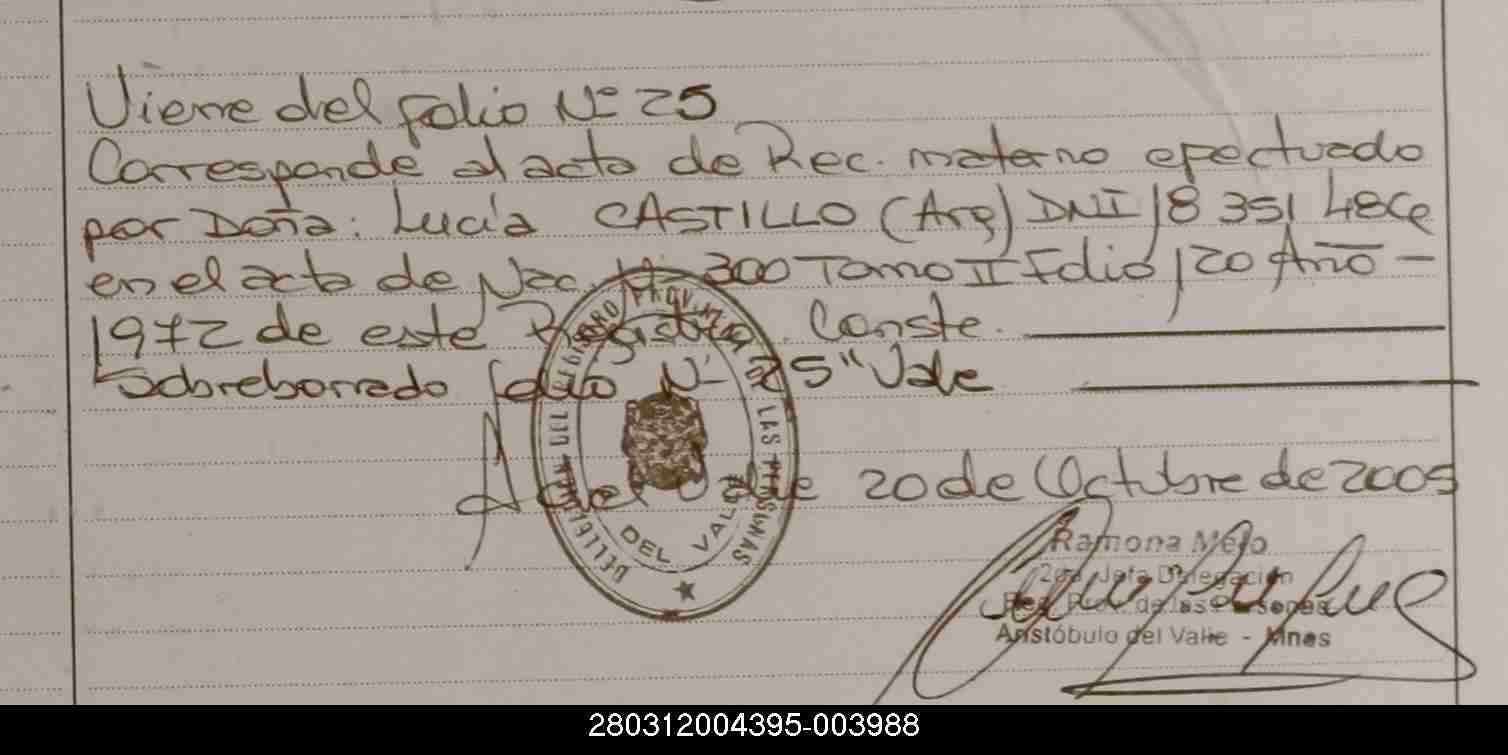 Viene del folio Nº 25
Corresponde al acta de Rec. materno efectuado
por Doña: Lucía CASTILLO (Arg) DNI 18 351 486
en el acta de Nac. Nº 300 Tomo II Folio 120 Año -
1972 de este Registro. Conste.
Sobreborrado folio Nº 25" Vale
A del Valle 20 de Octubre de 2005
DELEGACIÓN DEL REGISTRO PROVINCIAL DE LAS PERSONAS
DEL VALLE
Ramona Melo
2da. Jefa Delegación
Reg. Prov. de las Personas
Aristóbulo del Valle - Mnes
280312004395-003988